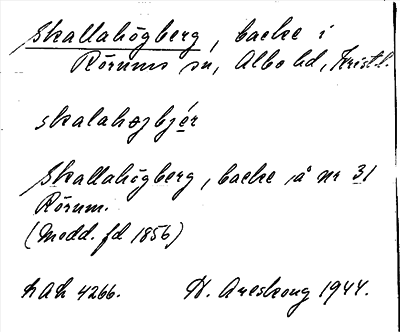 Skallahögberg, backe i
Rörums sn, Albo hd, Kristl.
skalahøjbjér
Skallahögberg, backe å nr 31
Rörum.
(Medd. fd 1856)
LAL 4266. W. Areskoug 1944.